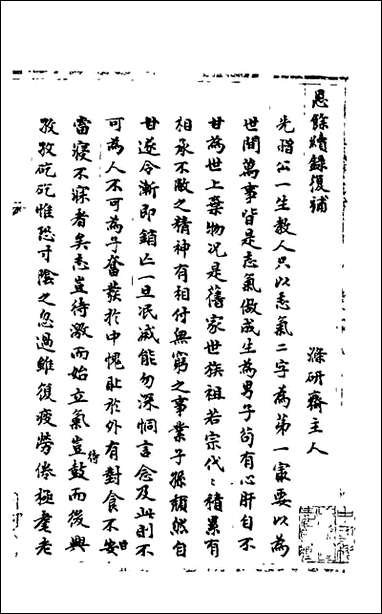 恩餘續錄復補
滌研齋主人
先指公一生教人只以志氣二字為第一竅要以為
世間萬事皆是志氣做成生為男子苟有心肝自不
甘為世上棄物況是舊家世族祖若宗代〻積累有
相承不敝之精神有相付無窮之事業子孫頹然自
甘遂令漸即銷亡一旦泯滅能勿深恫言念及此則不
可為人不可為子奮發於中愧恥於外有對食不安
當寢不寐者矣志豈待激而始立氣豈待鼓而後興
孜孜矻矻惟恐寸陰之忽過雖復疲勞倦極耄老